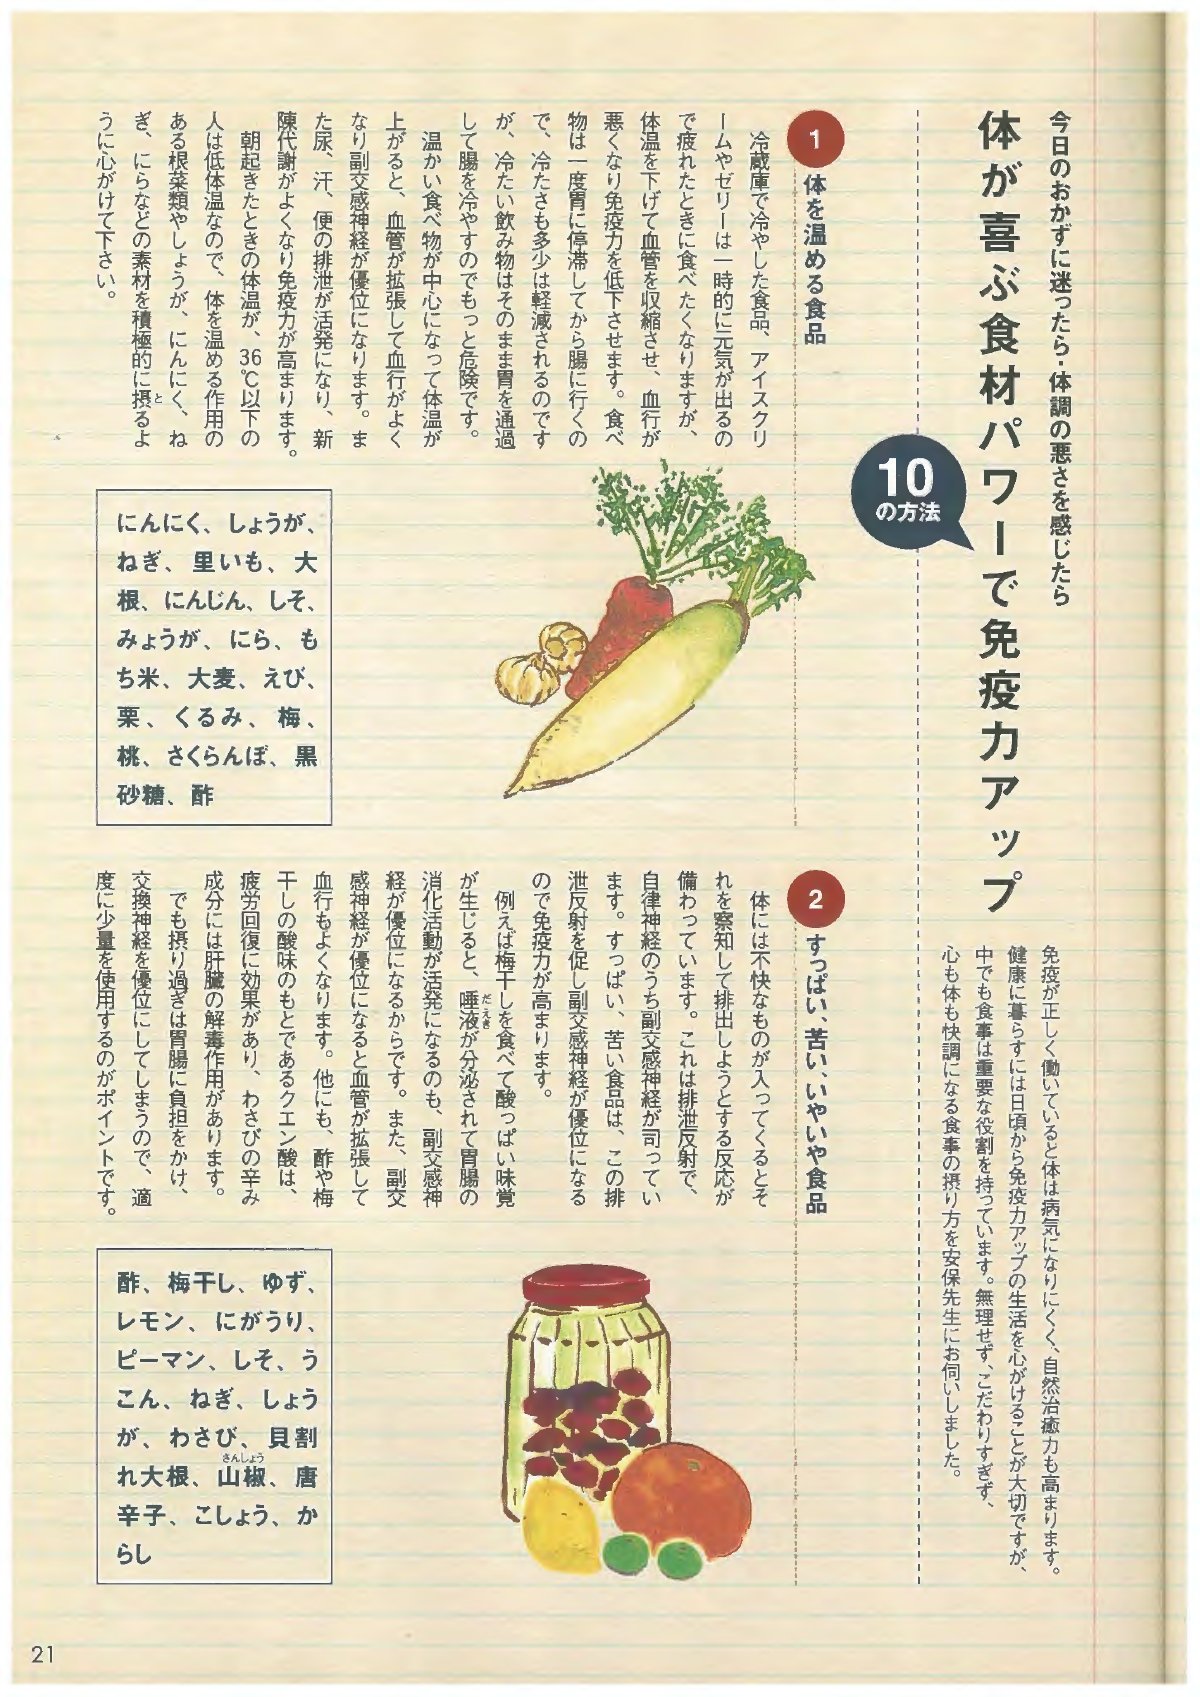 今日のおかずに迷ったら・体調の悪さを感じたら
体が喜ぶ食材パワーで免疫力アップ
10
の方法
免疫が正しく働いていると体は病気になりにくく、自然治癒力も高まります。
健康に暮らすには日頃から免疫力アップの生活を心がけることが大切ですが、
中でも食事は重要な役割を持っています。無理せず、こだわりすぎず、
心も体も快調になる食事の摂り方を安保先生にお伺いしました。
1 体を温める食品
冷蔵庫で冷やした食品、アイスクリ
ームやゼリーは一時的に元気が出るの
で疲れたときに食べたくなりますが、
体温を下げて血管を収縮させ、血行が
悪くなり免疫力を低下させます。食べ
物は一度胃に停滞してから腸に行くの
で、冷たさも多少は軽減されるのです
が、冷たい飲み物はそのまま胃を通過
して腸を冷やすのでもっと危険です。
温かい食べ物が中心になって体温が
上がると、血管が拡張して血行がよく
なり副交感神経が優位になります。ま
た尿、汗、便の排泄が活発になり、新
陳代謝がよくなり免疫力が高まります。
朝起きたときの体温が、36℃以下の
人は低体温なので、体を温める作用の
ある根菜類やしょうが、にんにく、ね
ぎ、にらなどの素材を積極的に摂るよ
と
うに心がけて下さい。
にんにく、しょうが、
ねぎ、里いも、大
根、にんじん、しそ、
みょうが、にら、も
ち米、大麦、えび、
栗、くるみ、梅、
桃、さくらんぼ、黒
砂糖、酢
2 すっぱい、苦い、いやいや食品
体には不快なものが入ってくるとそ
れを察知して排出しようとする反応が
備わっています。これは排泄反射で、
自律神経のうち副交感神経が司ってい
ます。すっぱい、苦い食品は、この排
泄反射を促し副交感神経が優位になる
ので免疫力が高まります。
例えば梅干しを食べて酸っぱい味覚
が生じると、唾液が分泌されて胃腸の
だえき
消化活動が活発になるのも、副交感神
経が優位になるからです。また、副交
感神経が優位になると血管が拡張して
血行もよくなります。他にも、酢や梅
干しの酸味のもとであるクエン酸は、
疲労回復に効果があり、わさびの辛み
成分には肝臓の解毒作用があります。
でも摂り過ぎは胃腸に負担をかけ、
交換神経を優位にしてしまうので、適
度に少量を使用するのがポイントです。
酢、梅干し、ゆず、
レモン、にがうり、
ピーマン、しそ、う
こん、ねぎ、しょう
が、わさび、貝割
さんしょう
れ大根、山椒、唐
辛子、こしょう、か
らし
21